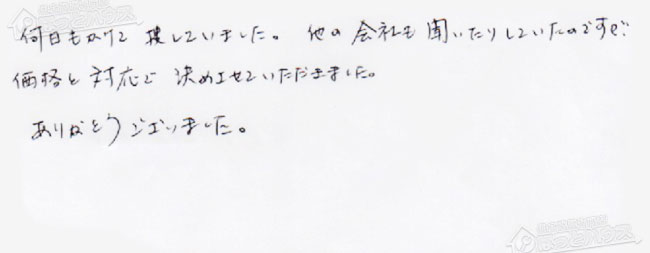 何日もかけて 捜していました。 他の 会社も 聞いたりしていたのですが
価格と 対応で 決めさせていただきました。
ありがとうございました。